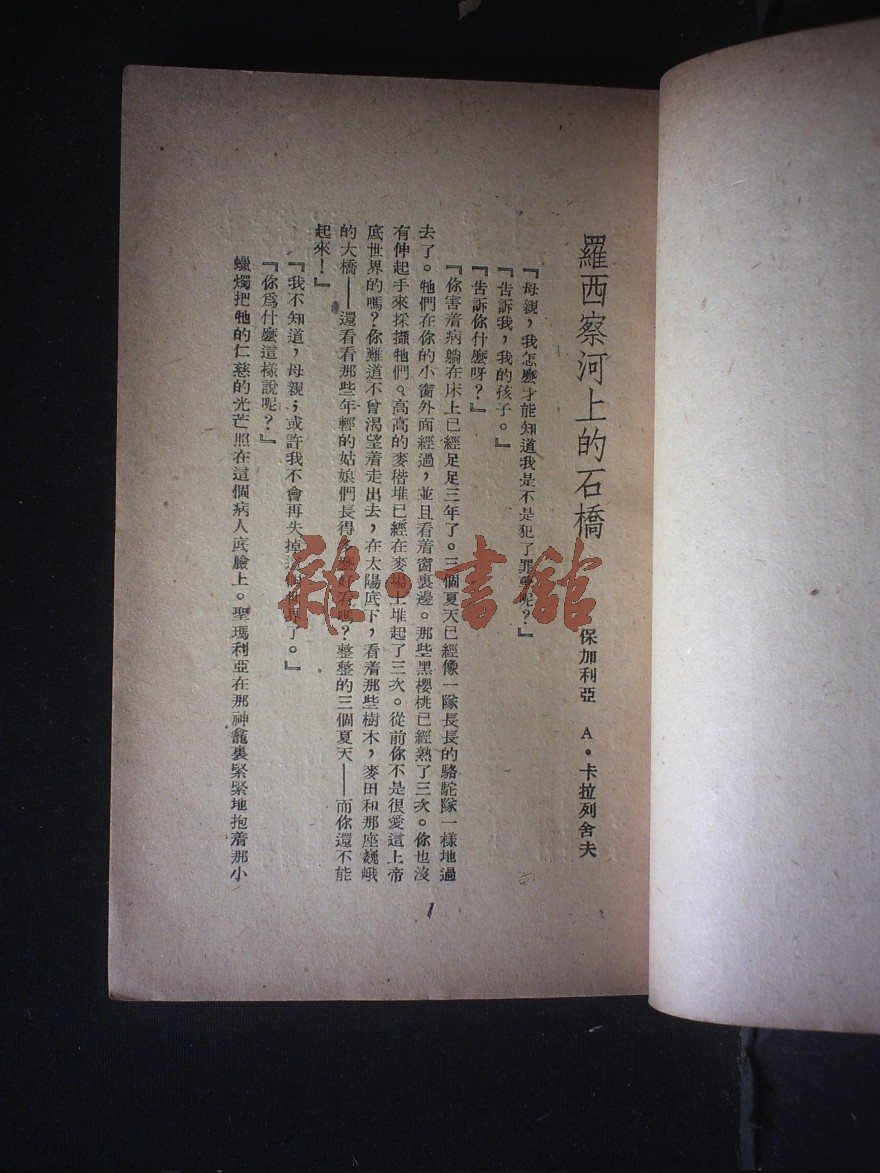 羅西察河上的石橋
保加利亞 A·卡拉列舍夫
『母親,我怎麼才能知道我是不是犯了罪孽呢?』
『告訴我,我的孩子。』
『告訴你什麼呀?』
『你害着病躺在床上已經足足三年了。三個夏天已經像一隊長長的駱駝隊一樣地過
去了。牠們在你的小窗外面經過,並且看着窗裏邊。那些黑櫻桃已經熟了三次。你也沒
有伸起手來採擷牠們。高高的麥稭堆已經在麥場上堆起了三次。從前你不是很愛這上帝
底世界的嗎?你難道不曾渴望着走出去,在太陽底下,看着那些樹木,麥田和那座巍峨
的大橋——還看看那些年輕的姑娘們長得多麼好看嗎?整整的三個夏天——而你還不能
起來!』
『我不知道,母親;或許我不會再失掉這個世界了。』
『你爲什麼這樣說呢?』
蠟燭把牠的仁慈的光芒照在這個病人底臉上。聖瑪利亞在那神龕裏緊緊地抱着那小
1
雜·書館